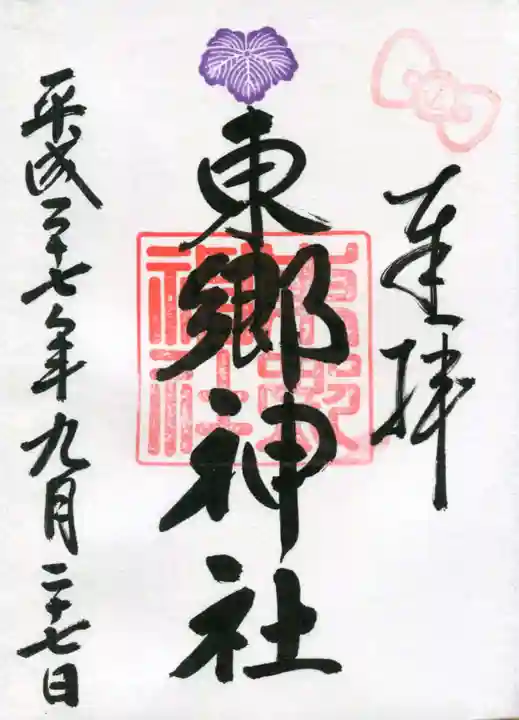 奉拝
東郷神社
平成二十七年九月二十七日